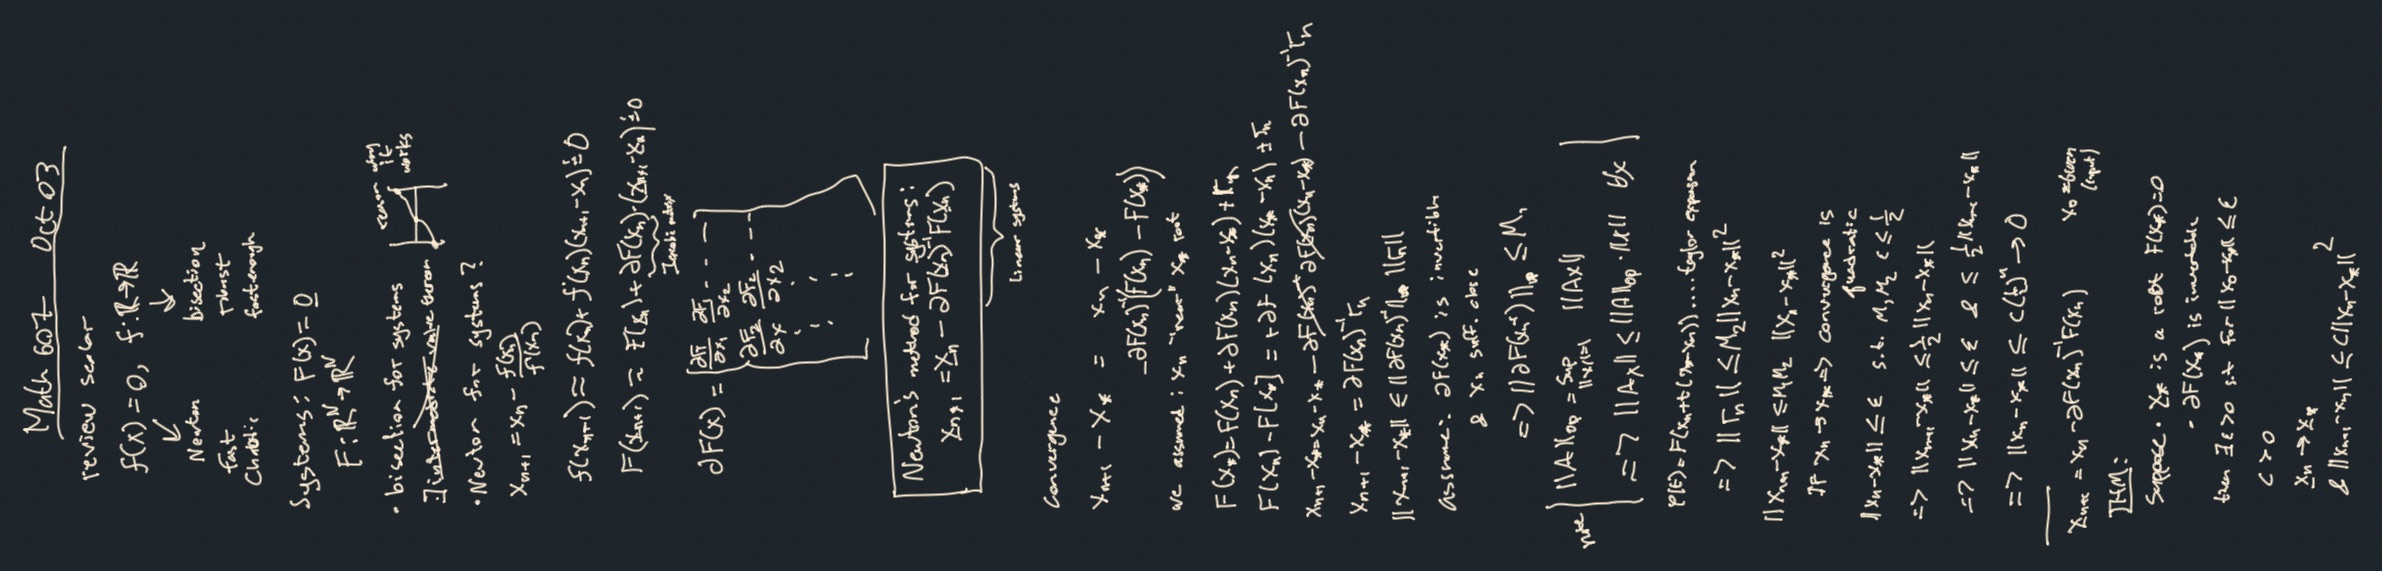 Math 607 Oct 03
review scalar
f(x) = 0, f: ℝ→ℝ
Newton bisection
fast robust
Chaotic fast enough
Systems: F(x) = 0
F: ℝᴺ → ℝᴺ
· bisection for systems
reason why it works
∃ intermediate value theorem
· Newton for systems?
xₙ₊₁ = xₙ - f(xₙ)/f'(xₙ)
f(xₙ₊₁) ≈ f(xₙ) + f'(xₙ)(xₙ₊₁-xₙ) ≐ 0
F(xₙ₊₁) ≈ F(xₙ) + ∂F(xₙ)·(xₙ₊₁-xₙ) ≐ 0
Jacobi matrix
∂F(x) = [∂F₁/∂x₁ ∂F₁/∂x₂ - - - -
∂F₂/∂x ∂F₂/∂x2 - - - -
⋮ ⋮ ]
Newton's method for systems:
xₙ₊₁ = xₙ - ∂F(xₙ)⁻¹F(xₙ)
Linear systems
Convergence
xₙ₊₁ - x* = xₙ - x*
-∂F(xₙ)⁻¹(F(xₙ) - F(x*))
we assumed: xₙ "near" x* root
F(x*) = F(xₙ) + ∂F(xₙ)(xₙ-x*) + rₙ
F(xₙ) - F[x*] = +∂F (xₙ)(x*-xₙ) ± rₙ
xₙ₊₁-x* = xₙ-x* - ∂F(xₙ)⁻¹ ∂F(xₙ)(xₙ-x*) - ∂F(xₙ)⁻¹rₙ
xₙ₊₁ - x* = ∂F(xₙ)⁻¹rₙ
||xₙ₊₁ - x*|| ≤ ||∂F(xₙ)⁻¹||ₒₚ ||rₙ||
assume: ∂F(x*) is invertible
& xₙ suff. close
=> ||∂F(xₙ⁻¹)||ₒₚ ≤ M₁
note
||A||op = sup ||x||=1 ||Ax||
=> ||Ax|| ≤ ||A||op · ||x|| ∀x
φ(t) = F(xₙ+t(x*-xₙ)) .... taylor expansion
=> ||rₙ|| ≤ M₂||xₙ-x*||²
||xₙ₊₁-x*|| ≤ M₁M₂ ||xₙ-x*||²
If xₙ → x* => convergence is
quadratic
||xₙ-x*|| ≤ ε s.t. M₁M₂ ε ≤ 1/2
=> ||xₙ₊₁-x*|| ≤ 1/2 ||xₙ-x*||
=> ||xₙ-x*|| ≤ ε & ≤ 1/2||xₙ₋₁-x*||
=> ||xₙ-x*|| ≤ c(1/2)ⁿ → 0
xₙ₊₁ = xₙ - ∂F(xₙ)⁻¹F(xₙ) x₀ = given
(input)
THM:
Suppose · x* is a root F(x*)=0
- ∂F(x*) is invertible
then ∃ε>0 s.t for ||x₀-x*|| ≤ ε
c > 0
xₙ → x*
& ||xₙ₊₁-xₙ|| ≤ C||xₙ-x*||²